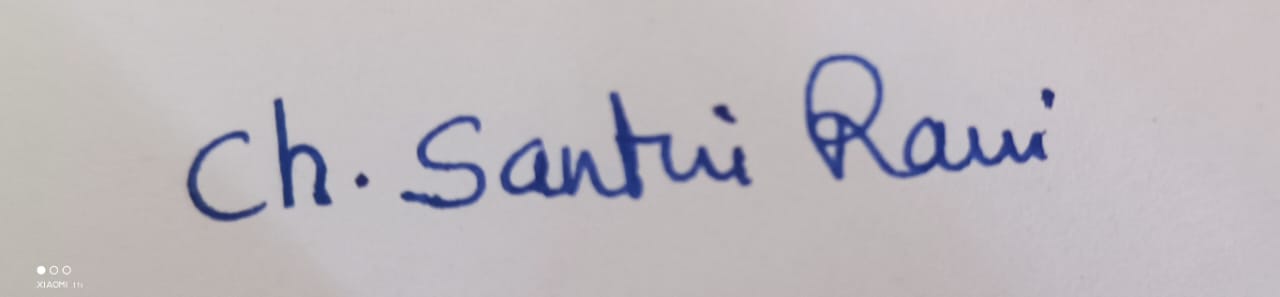 Ch. Santhi Rani
XIAOMI 11i